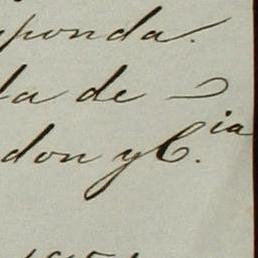 ponda.
la de
don y C.ia